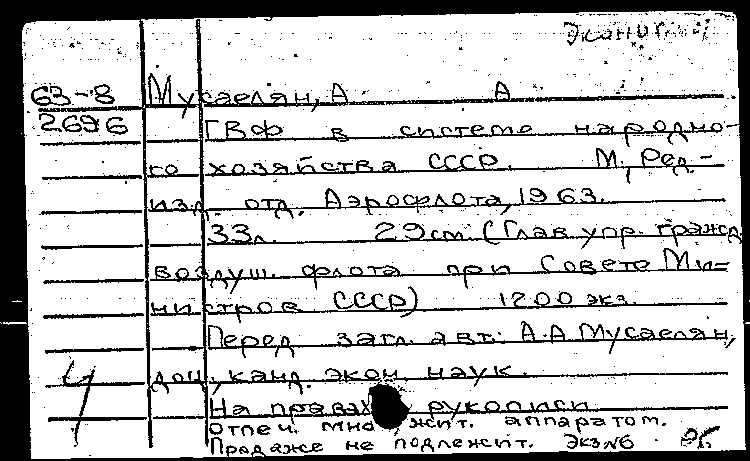 Эконом
63-8 Мусаелян, А А
2696 ГВФ в системе народно-
го хозяйства СССР. М, Ред-
изд. отд. Аэрофлота, 1963.
33л. 29см. (Глав. упр. гражд
воздуш. флота при Совете Ми-
нистров СССР) 1200 экз.
Перед загл. авт: А.А Мусаелян,
доц, канд. экон. наук.
4
На правах рукописи
Отпеч. множит. аппаратом.
Продаже не подлежит. Экз№6